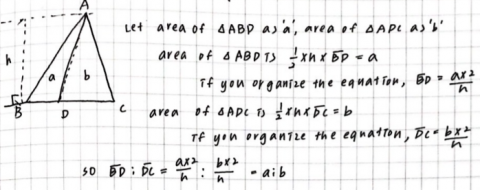 A
h
a
b
B
D
C
Let area of △ABD as 'a', area of △ADC as 'b'
area of △ABD is ½×h×BD = a
if you organize the equation, BD = a×2/h
area of △ADC is ½×h×DC = b
if you organize the equation, DC = b×2/h
so BD : DC = a×2/h : b×2/h = a:b